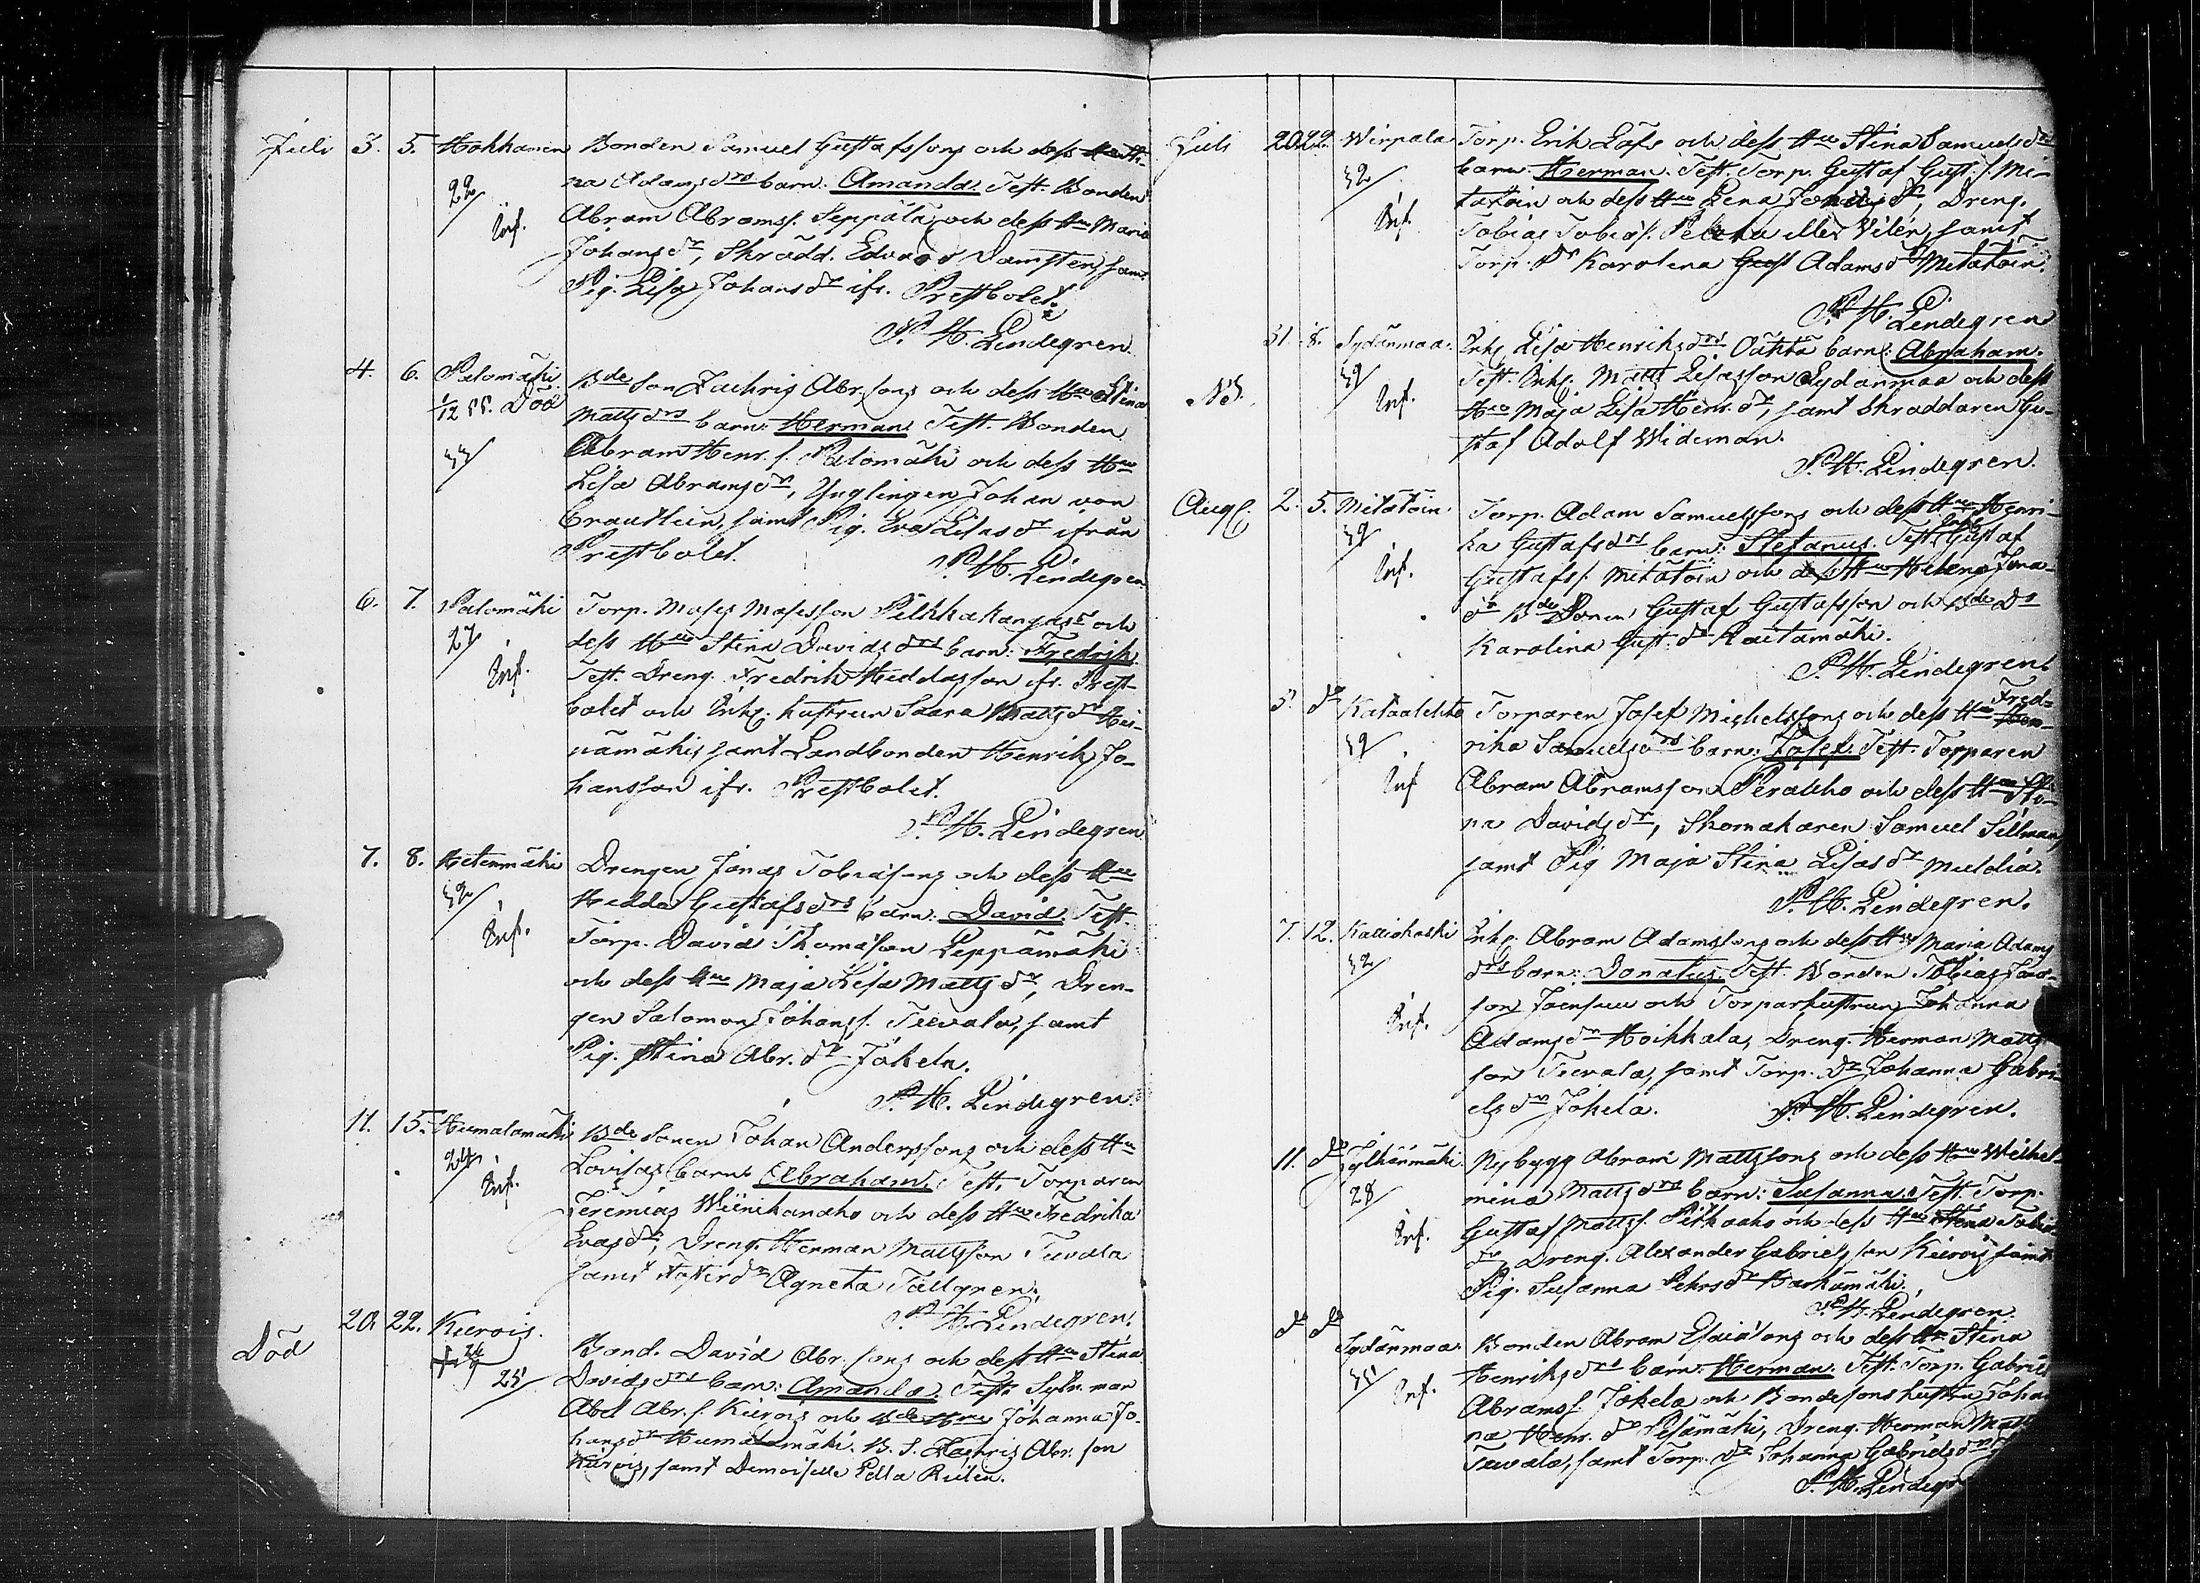 Juli 3. 5. Hokkanen Bonden Samuel Gustafssons och dess Hu Sti-
22 na Adamsdrs barn: Amanda. Test. Bonden
Inf. Abram Abramss. Seppälä och dess Hu Maria
Johansdr, Skrädd. Edvard Damsten, samt
Pig. Lisa Johansdr ifr. Prestbolet.
P. H. Lindegren.
4. 6. Palomäki Bde Son Zachris Abr.sons och dess Hu Stina
1/12 55. Död Mattsdrs barn: Herman. Test. Bonden
33 Abram Henr. s. Palomäki och dess Hu
Lisa Abramsdr, Ynglingen Johan von
samt Pig. Eva Lisasdr ifrån
Prestbolet.
P. H. Lindegren
6. 7. Palomäki Torp. Moses Mosesson Pilkkakangas och
27 dess Hu Stina Davidsdrs barn: Fredrik.
Inf. Test. Dreng. Fredrik Heddasson ifr. Prest-
bolet och Inh. hustrun Saara Mattsdr Hei-
nämäki, samt Landbonden Henrik Jo-
hansson ifr. Prestbolet.
P. H. Lindegren
7. 8. Ketenmäki Drengen Jonas Tobiassons och dess Hu
32 Hedda Gustafsdrs barn: David. Test.
Inf. Torp. David Thomasson Leppämäki
och dess Hu Maja Lisa Mattsdr, Dren-
gen Salomon Johanss. Teevala, samt
Pig. Stina Abr.dr Jokela.
P. H. Lindegren.
11. 15. Humalamäki Bde Sonen Johan Anderssons och dess Hu
24 Lovisas barn: Abraham. Test. Torparen
Inf. Jeremias Wiinikanaho och dess Hu Fredrika
Evasdr, Dreng. Herman Mattsson Teevala
samt Agneta Tällgren.
P. H. Lindegren.
Död 20. 22. Kierois. Bond. David Abr. sons och dess Hu Stina
25 Davidsdrs barn: Amanda. Test.
Abel Abr. s. Kierois och Johanna Jo-
hansdr Humalamäki. B. S. Zachris Abr. son
Kierois, samt Demoiselle Edla
Juli 20. 22. Wirpala Torp. Erik Löfs och dess Hu Stina Samuelsdrs
32 barn: Herman. Test. Torp. Gustaf Gust. s. Mi-
Inf. tätöin och dess Hu Lena dr, Dreng.
Tobias Tobiass. eller Vilén, samt
Torp. Dr Karolina Adamsdr Mitätöin.
P. H. Lindegren
31. 8. Sydänmaa. Inh. Lisa Henriksdrs barn: Abraham.
39 Test. Inh. Matts Lisasson Sydänmaa och dess
Inf. Hu Maja Lisa Henr. dr, samt Skräddaren Gu-
staf Adolf Wideman.
P. H. Lindegren.
Aug. 2. 5. Mitätöin Torp. Adam Samuelssons och dess Hu Henri-
39 ka Gustafsdrs barn: Stefanus. Test. Gustaf
Inf. Gustafs s. Mitätöin och dess Hu Helena Jona-
dr Bde Sonen Gustaf Gustafsson och Bde Dr
Karolina Gust. dr Rautamäki.
P. H. Lindegren
5. do Kataalehto Torparen Josef Michelssons och dess Hu Fred-
32 rika Samuelsdrs barn: Josef. Test. Torparen
Inf Abram Abramsson Peraleho och dess Hu Sti-
na Davidsdr, Skomakaren Samuel Sillman,
samt Pig Maja Stina Lisasdr
P. H. Lindegren.
7. 12. Kattiokoski Inh. Abram Adamssons och dess Hu Maria Adams
32 drs barn: Donatus. Test. Bonden Tobias
Inf. son Joensuu och Torparhustrun Johanna
Adamsdr Hoikkala, Dreng. Herman Matts
son Teevala, samt Torp. Dr Johanna Gabri-
elsdr Jokela. P. H. Lindegren.
11. do Jylhänmäki. Nybygg Abram Mattssons och dess Hu Wilhel-
28 mina Mattsdrs barn: Susanna. Test. Torp.
Inf. Gustaf Mattss. Pitkäaho och dess Hu Stina
dr, Dreng. Alexander Gabrielsson Kierois samt
Pig. Susanna Pehrsdr
P. H. Lindegren.
do do Sydänmaa Bonden Abram Esaiassons och dess Hu Stina
35 Henriksdrs barn: Herman. Test. Torp. Gabriel
Inf. Abramss. Jokela och Bondesons hustrun Johan-
na Henr. dr Pesämäki, Dreng. Herman Matts
Teevala, samt Torp. Dr Johanna Gabrielsdr
P. H. Lindegren